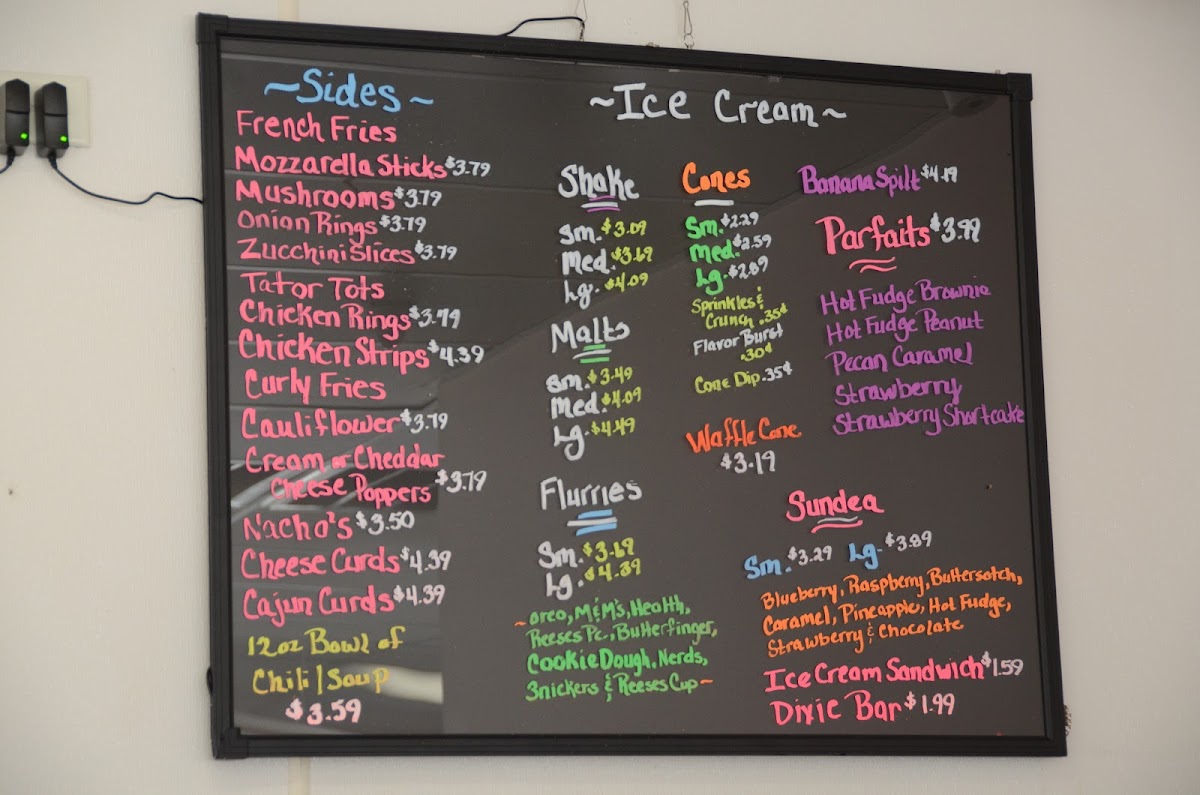 ~Sides~
French Fries
Mozzarella Sticks $3.79
Mushrooms $3.79
Onion Rings $3.79
Zucchini Slices $3.79
Tator Tots
Chicken Rings $3.79
Chicken Strips $4.39
Curly Fries
Cauliflower $3.79
Cream or Cheddar
Cheese Poppers $3.79
Nacho's $3.50
Cheese Curds $4.39
Cajun Curds $4.39
12oz Bowl of
Chili/Soup
$3.59
~Ice Cream~
Shake
Sm. $3.09
Med. $3.69
Lg. $4.09
Malts
Sm. $3.49
Med. $4.09
Lg. $4.49
Flurries
Sm. $3.69
Lg. $4.39
~Oreo, M&M's, Health,
Reeses Pc., Butterfinger,
Cookie Dough, Nerds,
Snickers & Reeses Cup~
Cones
Sm. $2.29
Med. $2.59
Lg. $2.89
Sprinkles &
Crunch .35¢
Flavor Burst
.30¢
Cone Dip .35¢
Waffle Cone
$3.19
Banana Spilt $4.19
Parfaits $3.99
Hot Fudge Brownie
Hot Fudge Peanut
Pecan Caramel
Strawberry
Strawberry Shortcake
Sundea
Sm. $3.29 Lg. $3.89
Blueberry, Raspberry, Buttersotch,
Caramel, Pineapple, Hot Fudge,
Strawberry & Chocolate
Ice Cream Sandwich $1.59
Dixie Bar $1.99